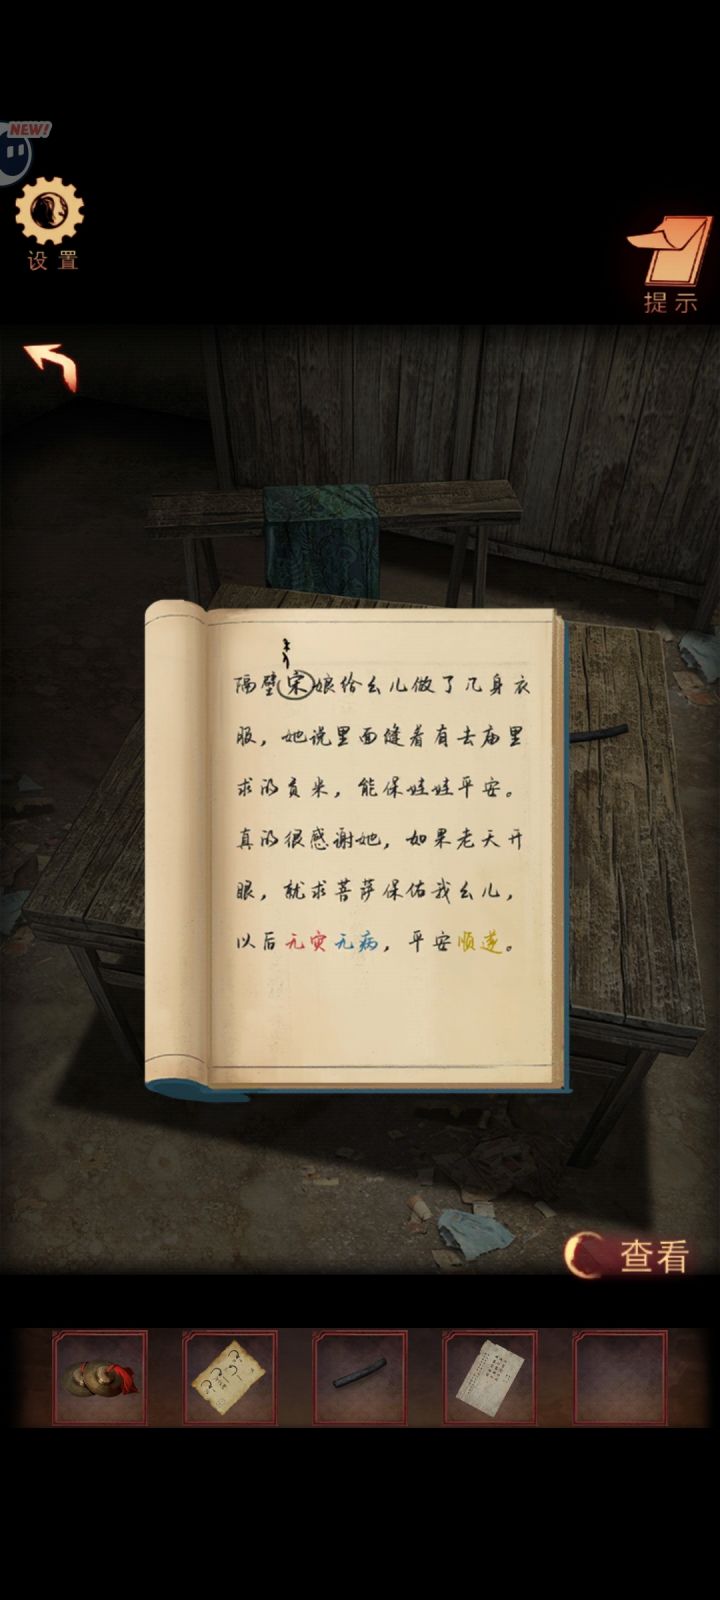 NEW!
设置
提示
隔壁宋娘给幺儿做了几身衣
服，她说里面缝着有去庙里
求的贡米，能保娃娃平安。
真的很感谢她，如果老天开
眼，就求菩萨保佑我幺儿，
以后无灾无病，平安顺遂。
查看